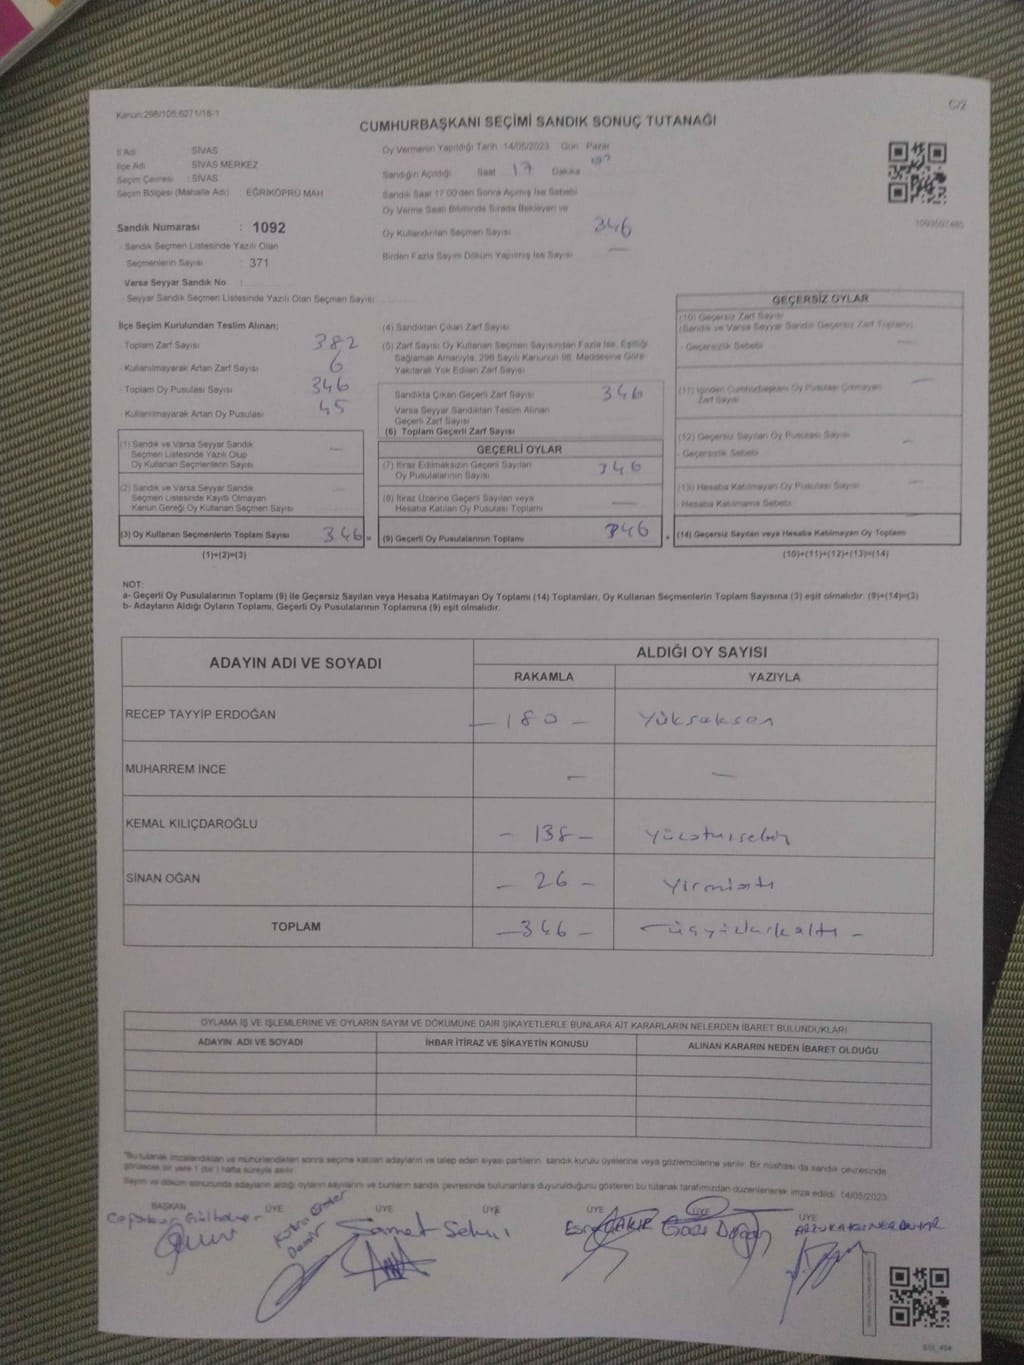 Kanun:298/105;6271/16-1
C/2
CUMHURBAŞKANI SEÇİMİ SANDIK SONUÇ TUTANAĞI
İl Adı SİVAS
İlçe Adı SİVAS MERKEZ
Seçim Çevresi : SİVAS
Seçim Bölgesi (Mahalle Adı) EĞRİKÖPRÜ MAH
Sandık Numarası : 1092
- Sandık Seçmen Listesinde Yazılı Olan
Seçmenlerin Sayısı : 371
Varsa Seyyar Sandık No :
- Seyyar Sandık Seçmen Listesinde Yazılı Olan Seçmen Sayısı:
Oy Vermenin Yapıldığı Tarih 14/05/2023 Gün Pazar
Sandığın Açıldığı Saat 17 Dakika
Sandık Saat 17:00'den Sonra Açılmış İse Sebebi
Oy Verme Saati Bitiminde Sırada Bekleyen ve
Oy Kullandırılan Seçmen Sayısı 346
Birden Fazla Sayım Döküm Yapılmış İse Sayısı —
İlçe Seçim Kurulundan Teslim Alınan;
- Toplam Zarf Sayısı 382
- Kullanılmayarak Artan Zarf Sayısı 6
- Toplam Oy Pusulası Sayısı 346
- Kullanılmayarak Artan Oy Pusulası 45
(1) Sandık ve Varsa Seyyar Sandık
Seçmen Listesinde Yazılı Olup
Oy Kullanan Seçmenlerin Sayısı —
(2) Sandık ve Varsa Seyyar Sandık
Seçmen Listesinde Kayıtlı Olmayan
Kanun Gereği Oy Kullanan Seçmen Sayısı —
(3) Oy Kullanan Seçmenlerin Toplam Sayısı 346 =
(1)+(2)=(3)
(4) Sandıktan Çıkan Zarf Sayısı
(5) Zarf Sayısı Oy Kullanan Seçmen Sayısından Fazla İse, Eşitliği
Sağlamak Amacıyla, 298 Sayılı Kanunun 98. Maddesine Göre
Yakılarak Yok Edilen Zarf Sayısı
Sandıkta Çıkan Geçerli Zarf Sayısı 346
Varsa Seyyar Sandıktan Teslim Alınan
Geçerli Zarf Sayısı
(6) Toplam Geçerli Zarf Sayısı
GEÇERLİ OYLAR
(7) İtiraz Edilmeksizin Geçerli Sayılan
Oy Pusulalarının Sayısı 346
(8) İtiraz Üzerine Geçerli Sayılan veya
Hesaba Katılan Oy Pusulası Toplamı —
(9) Geçerli Oy Pusulalarının Toplamı 346 +
GEÇERSİZ OYLAR
(10) Geçersiz Zarf Sayısı
(Sandık ve Varsa Seyyar Sandık Geçersiz Zarf Toplamı)
- Geçersizlik Sebebi —
(11) İçinden Cumhurbaşkanı Oy Pusulası Çıkmayan
Zarf Sayısı —
(12) Geçersiz Sayılan Oy Pusulası Sayısı —
- Geçersizlik Sebebi
(13) Hesaba Katılmayan Oy Pusulası Sayısı —
- Hesaba Katılmama Sebebi
(14) Geçersiz Sayılan veya Hesaba Katılmayan Oy Toplamı
(10)+(11)+(12)+(13)=(14)
NOT:
a- Geçerli Oy Pusulalarının Toplamı (9) ile Geçersiz Sayılan veya Hesaba Katılmayan Oy Toplamı (14) Toplamları, Oy Kullanan Seçmenlerin Toplam Sayısına (3) eşit olmalıdır. (9)+(14)=(3)
b- Adayların Aldığı Oyların Toplamı, Geçerli Oy Pusulalarının Toplamına (9) eşit olmalıdır.
ADAYIN ADI VE SOYADI ALDIĞI OY SAYISI
RAKAMLA YAZIYLA
RECEP TAYYİP ERDOĞAN — 180 — Yükseksen
MUHARREM İNCE — —
KEMAL KILIÇDAROĞLU — 138 —
SİNAN OĞAN — 26 — Yirmialtı
TOPLAM — 346 —
OYLAMA İŞ VE İŞLEMLERİNE VE OYLARIN SAYIM VE DÖKÜMÜNE DAİR ŞİKAYETLERLE BUNLARA AİT KARARLARIN NELERDEN İBARET BULUNDUKLARI
ADAYIN ADI VE SOYADI İHBAR İTİRAZ VE ŞİKAYETİN KONUSU ALINAN KARARIN NEDEN İBARET OLDUĞU
*Bu tutanak imzalandıktan ve mühürlendikten sonra seçime katılan adayların ve talep eden siyasi partilerin sandık kurulu üyelerine veya gözlemcilerine verilir. Bir nüshası da sandık çevresinde
görülecek bir yere 1 (bir) hafta süreyle asılır.
Sayım ve döküm sonucunda adayların aldığı oyların sayılarını ve bunların sandık çevresinde bulunanlara duyurulduğunu gösteren bu tutanak tarafımızdan düzenlenerek imza edildi. 14/05/2023
BAŞKAN ÜYE ÜYE ÜYE ÜYE ÜYE ÜYE
Samet Esra ÇAKIR Gazi Doğan